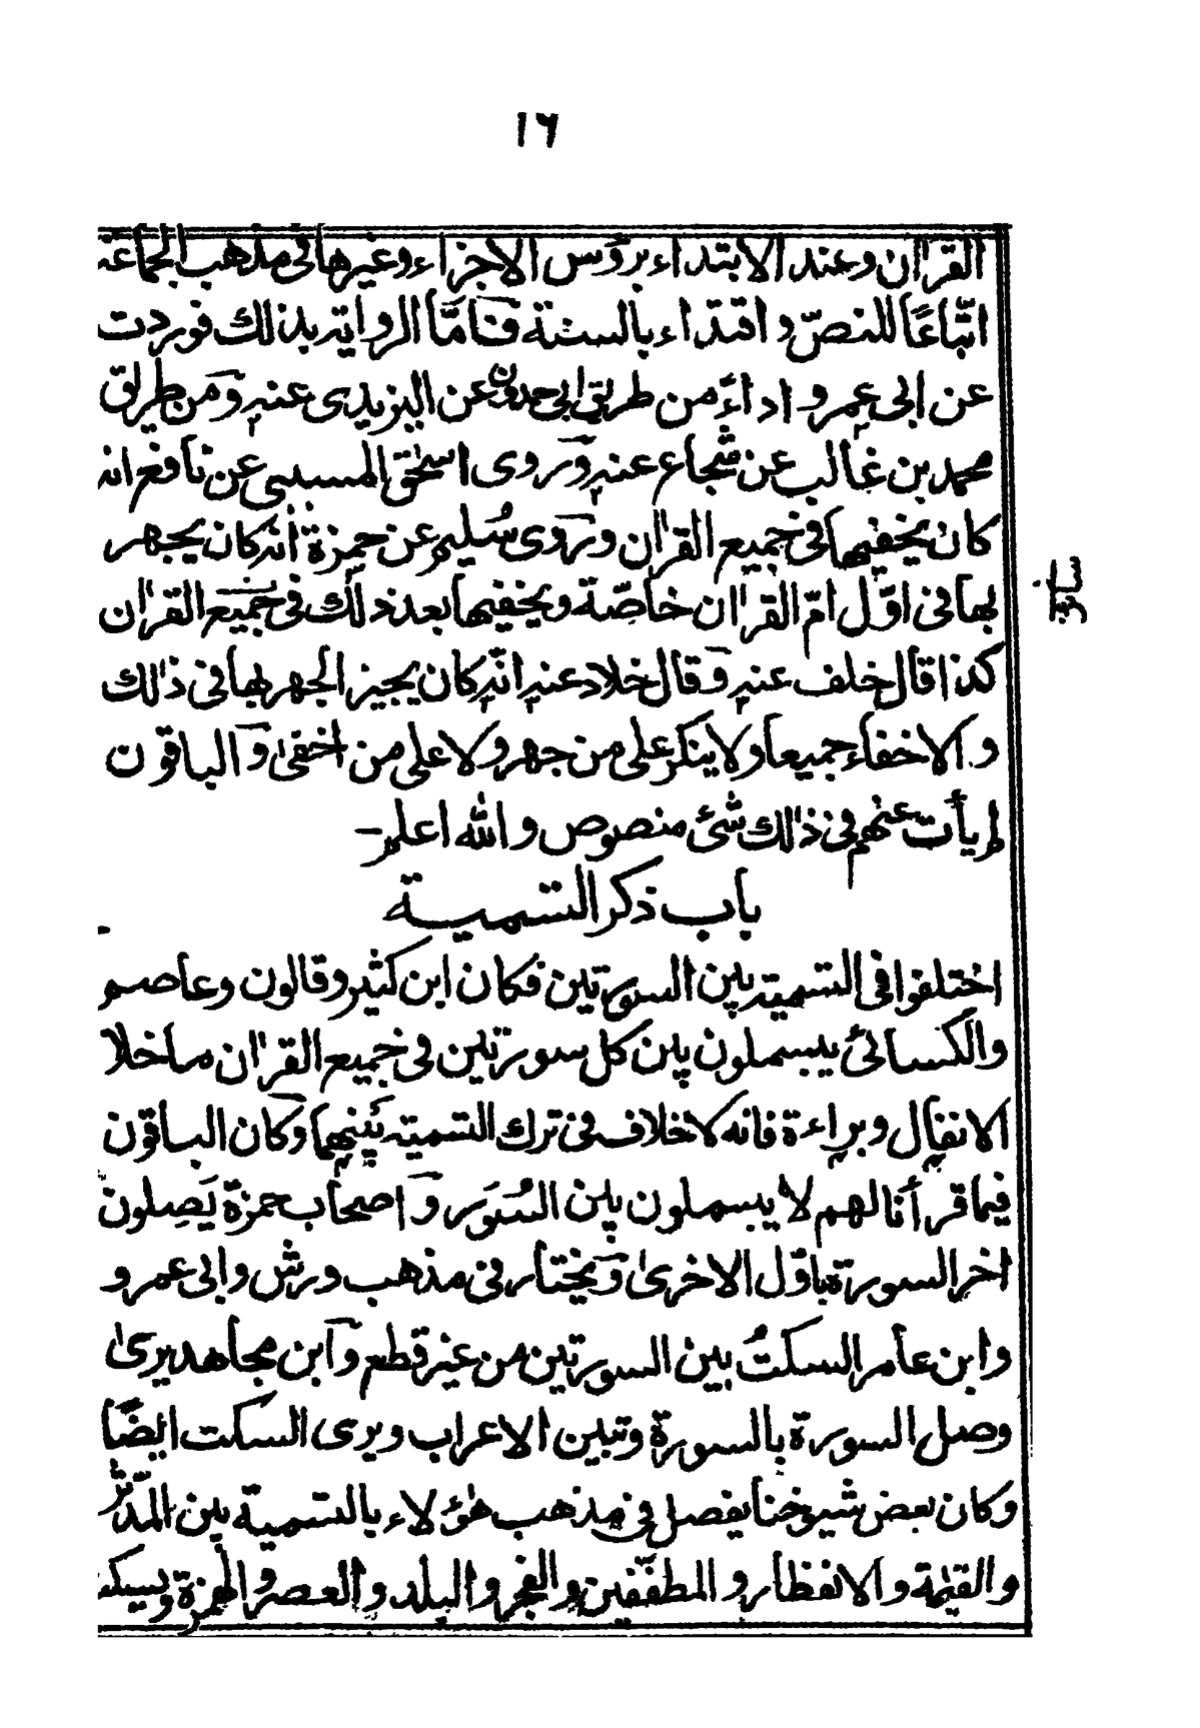 ١٦
القراٰن وعند الابتداء برؤس الاجزاء وغيرها فى مذهب الجماعة
اتّباعًا للنصّ واقتداء بالسنة فَامَّا الرواية بذلك فوردت
عن ابى عمرو اداءً من طريق ابى حمدون عن اليزيدى عنه وَمن طريق
محمد بن غالب عن شجاع عنه وَروى اسحٰق المسيبى عن نافع انه
كان يخفيها فى جميع القراٰن وَروى سُليم عن حمزة انه كان يجهر
بها فى اوّل امّ القراٰن خاصّة ويخفيها بعد ذلك فى جميع القراٰن
كذا قال خلف عنه وَقال خلاد عنه انّه كان يجيز الجهر بها فى ذٰلك
والاخفاء جميعا ولا ينكر على من جهر ولا على من اخفىٰ وَالباقون
لم يأت عنهم فى ذٰلك شئ منصوص والله اعلم
باب ذكر التسمية
اختلفوا فى التسمية بين السورتين فكان ابن كثير وقالون وعاصم
والكسائى يبسملون بين كل سورتين فى جميع القراٰن ماخلا
الانفال وبراءة فانه لاخلاف فى ترك التسمية بَينهما وَكان الباقون
فيما قرأنا لهم لا يبسملون بين السُوَر وَاصحاب حمزة يَصِلون
اخر السورة باوّل الاخرىٰ وَيختار فى مذهب ورش وابى عمرو
وابن عامر السكتُ بين السورتين من غير قطع وَابن مجاهد يرىٰ
وصل السورة بالسورة وتبين الاعراب ويرى السكت ايضًا
وكان بعض شيوخنا يفصل فى مذهب هٰؤلاء بالتسمية بين المدّثّر
والقيٰمة والانفطار والمطففين والفجر والبلد والعصر والهمزة ويسكت